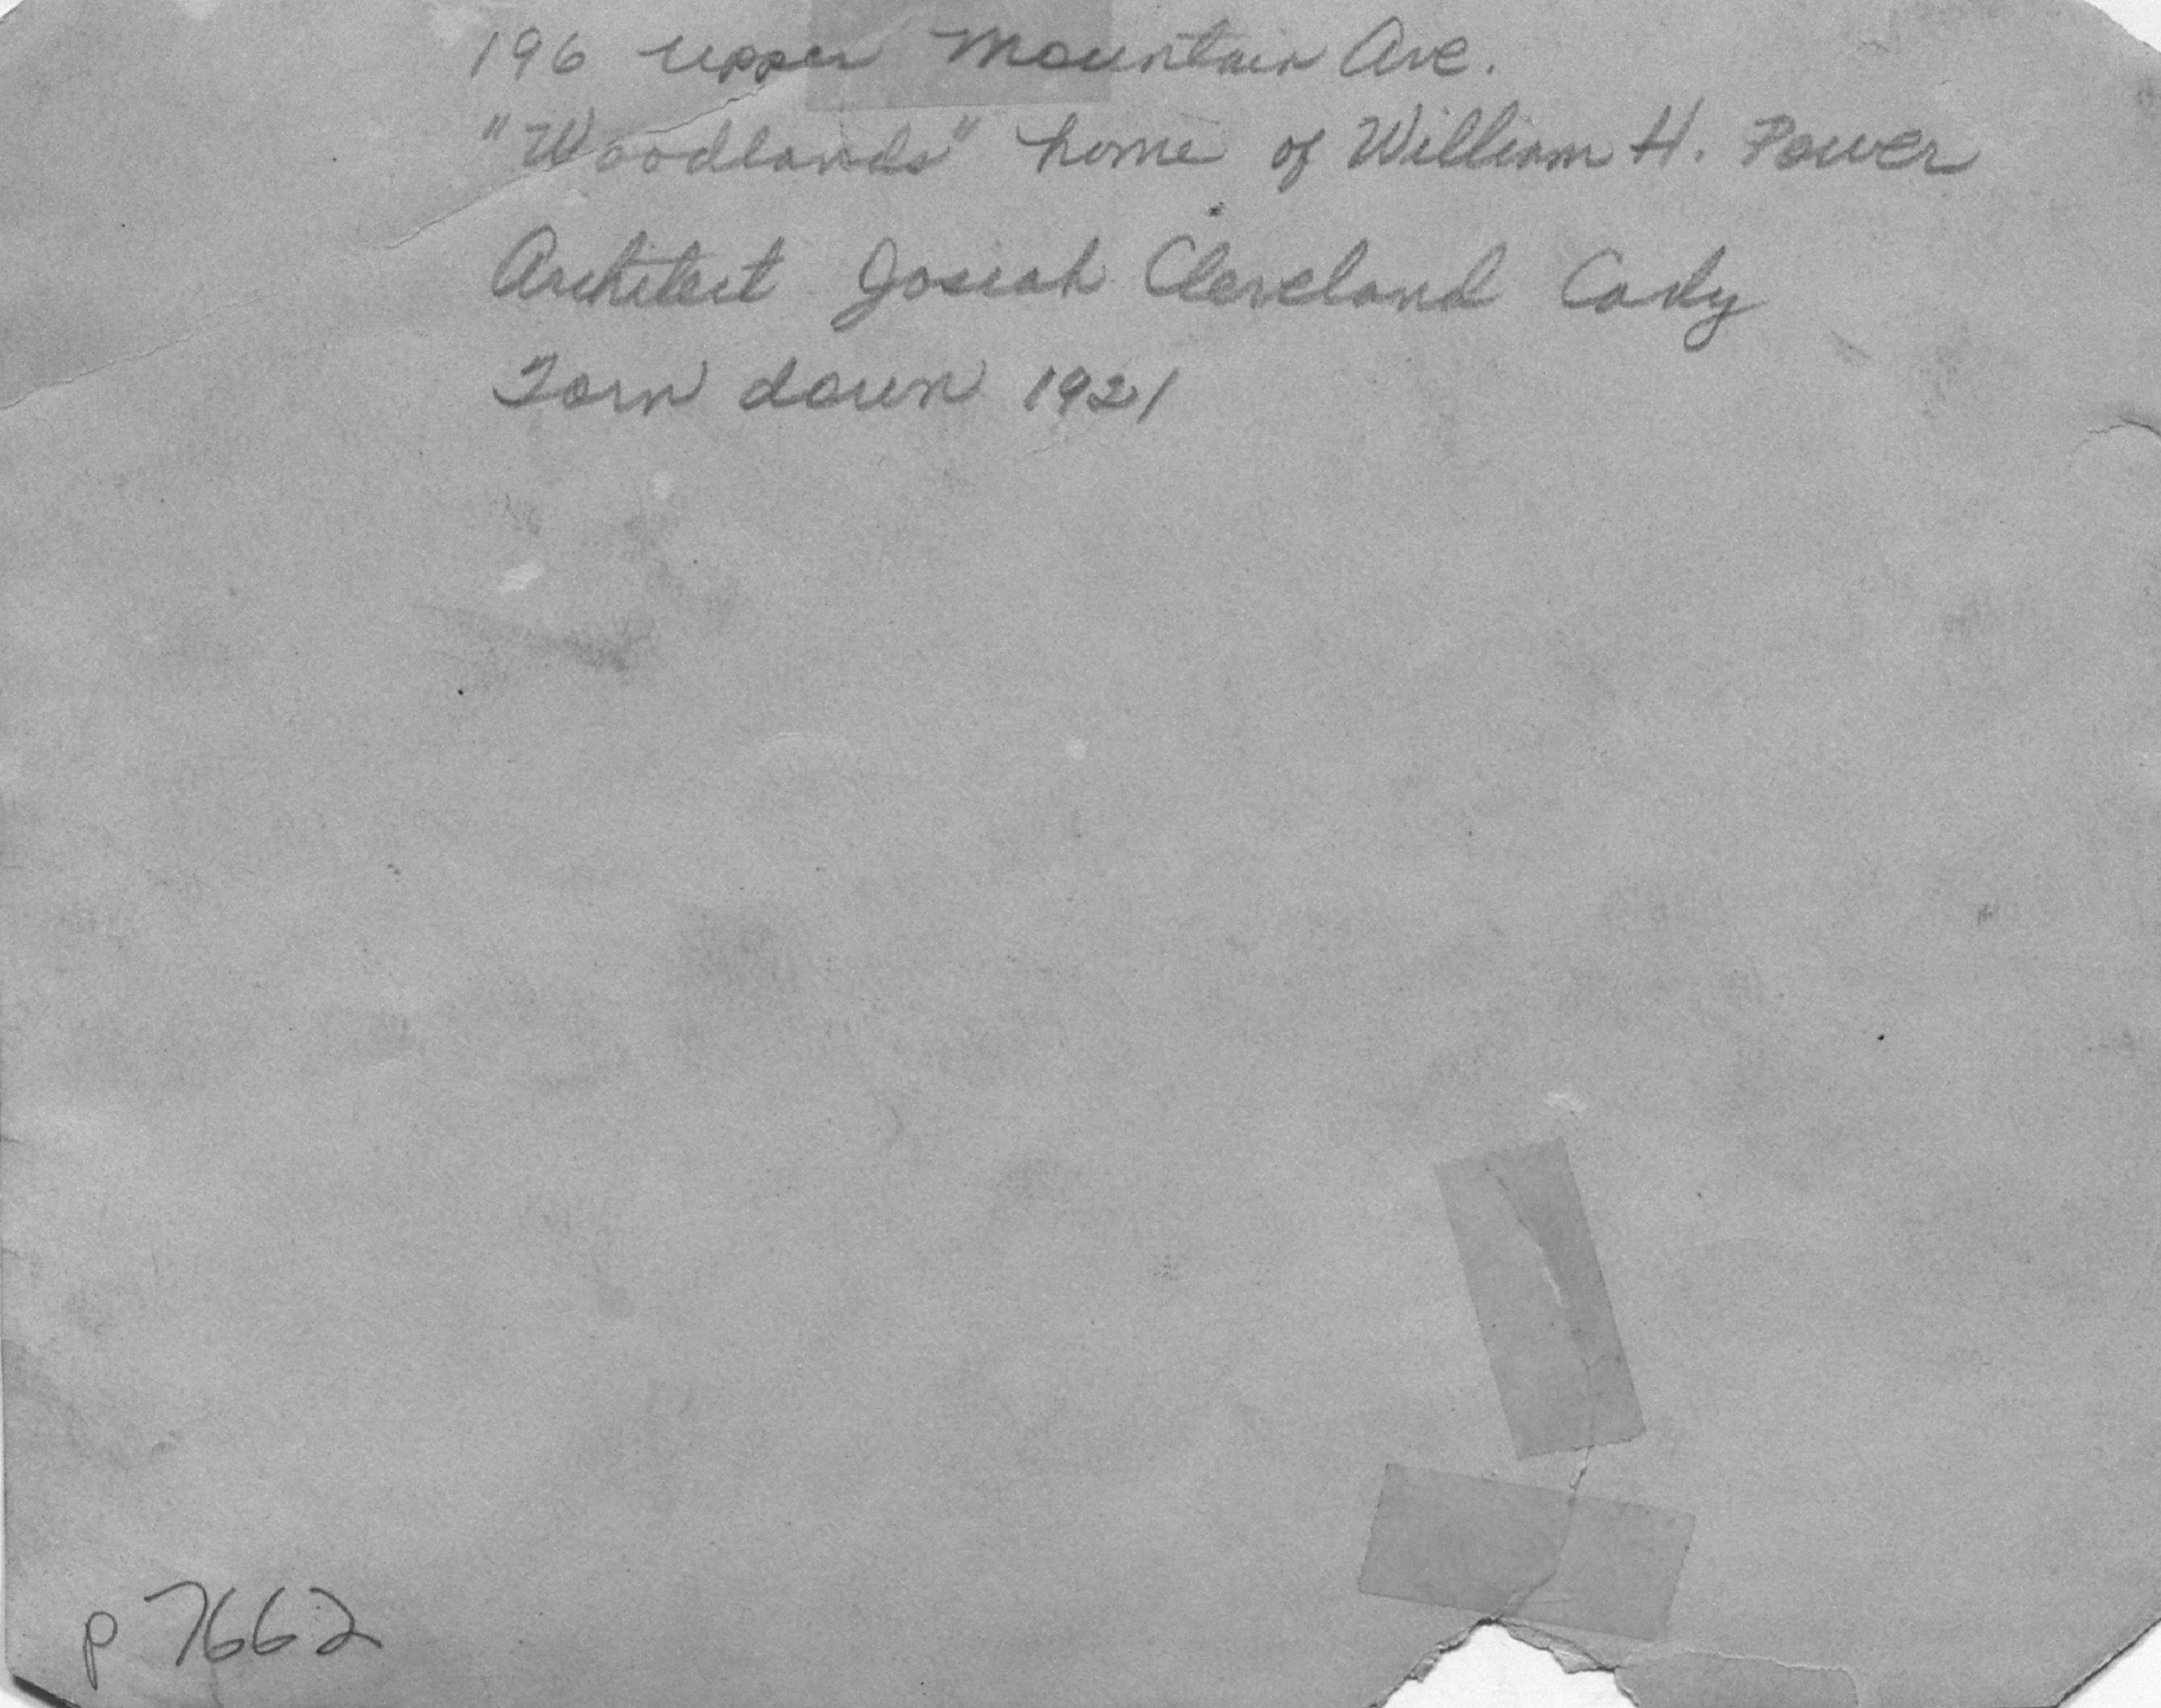 196 Upper Mountain Ave.
"Woodlands" home of William H. Power
Architect Josiah Cleveland Cady
Torn down 1921
p 7662